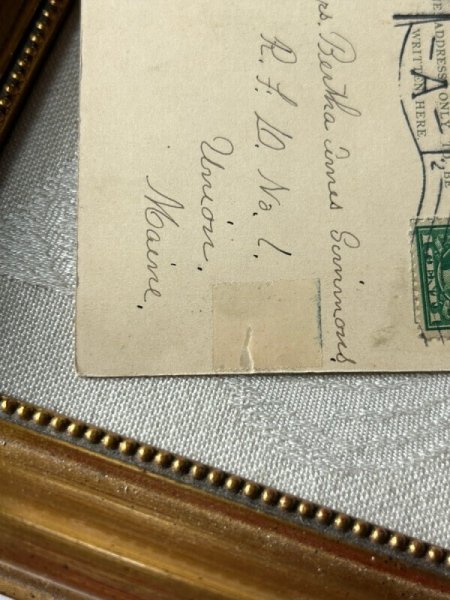 rs. Bertha Ames Simmons,
R. F. D. No. 1.
Union.
Maine.
E ADDRESS ONLY TO BE
WRITTEN HERE
A